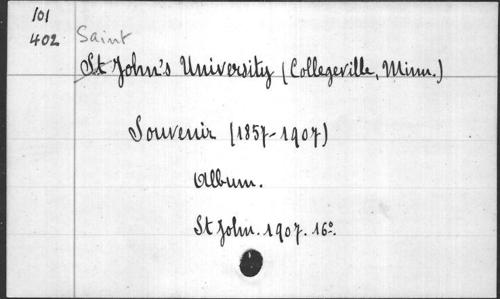 101
402 Saint
St John's University (Collegeville, Minn.)
Souvenir (1857-1907)
Album.
St John. 1907. 16º.